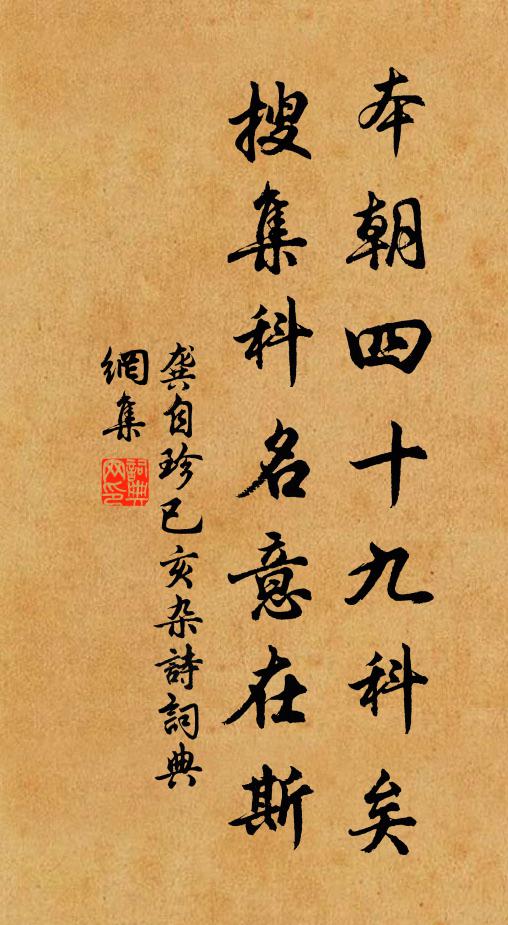 本朝四十九科矣
搜集科名意在斯
龔自珍己亥杂詩詞典
網集
詞典
网印